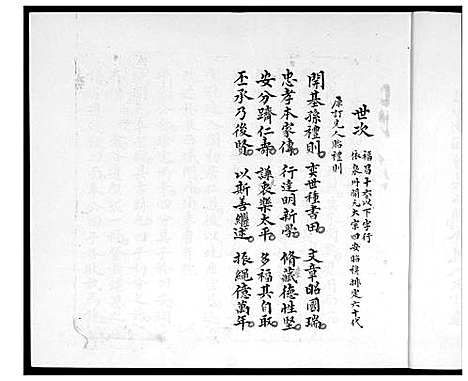 世次
福昌十六以下字行
依泉州開元大宗四安昭穆排定六十代
原訂先人貽禮則
開基孫禮則 奕世種書田 文章昭國瑞
忠孝本家傳 行達明新學 脩藏德性堅
安分躋仁壽 謙衷樂太平 多福其自取
丕承乃後賢 以新善繼述 振繩億萬年